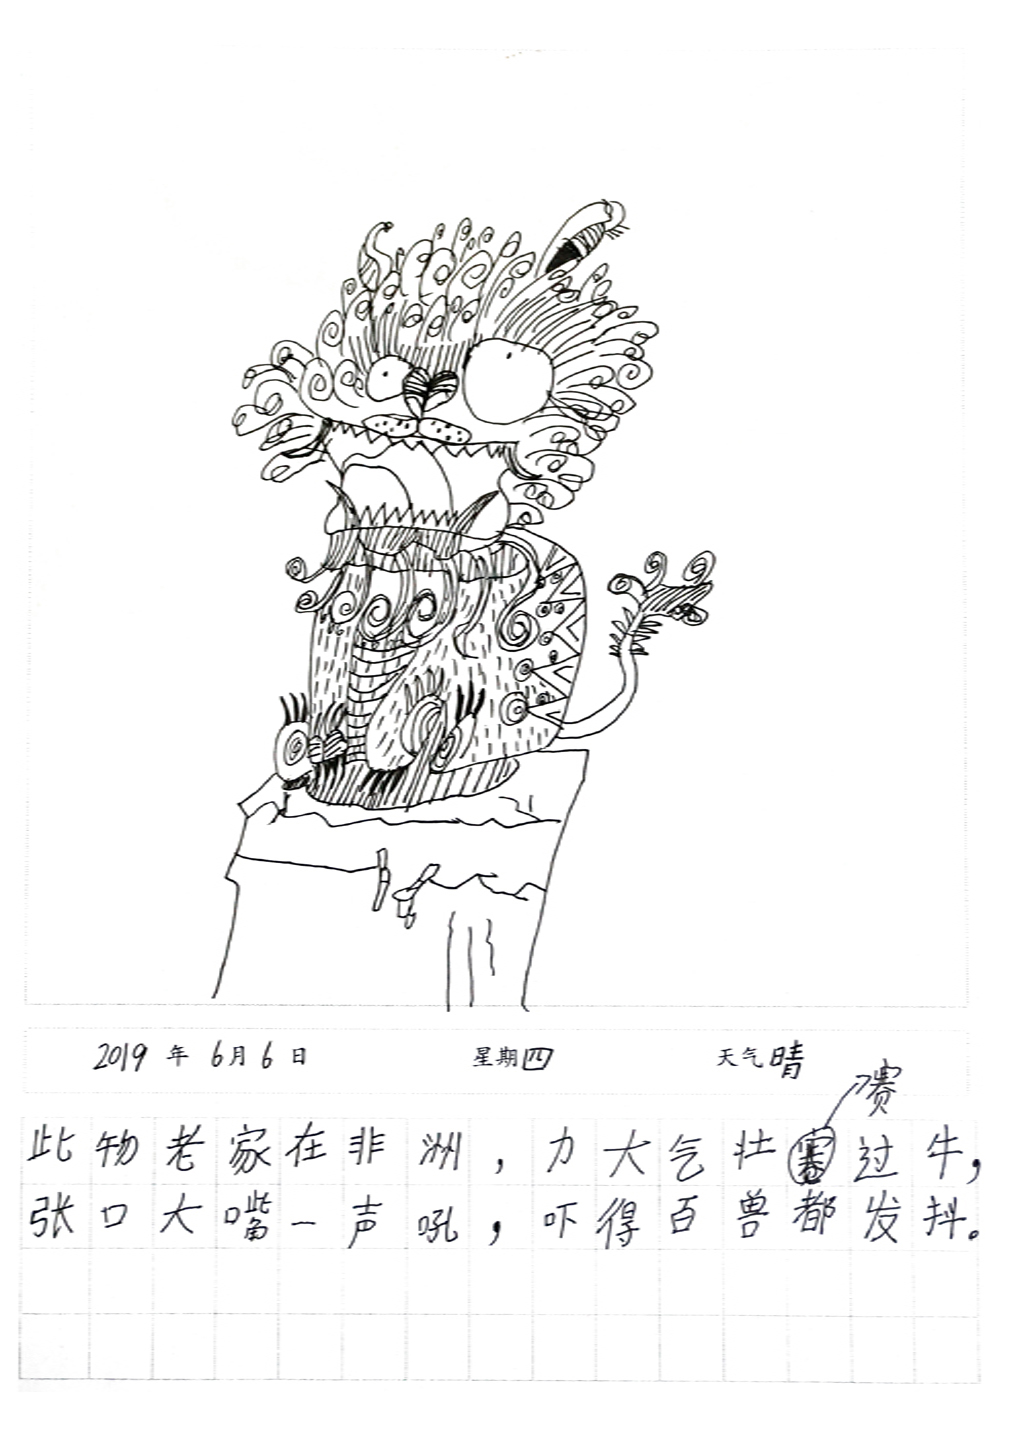 2019 年 6月 6 日 星期四 天气晴
赛
此物老家在非洲，力大气壮赛过牛，
张口大嘴一声吼，吓得百兽都发抖。